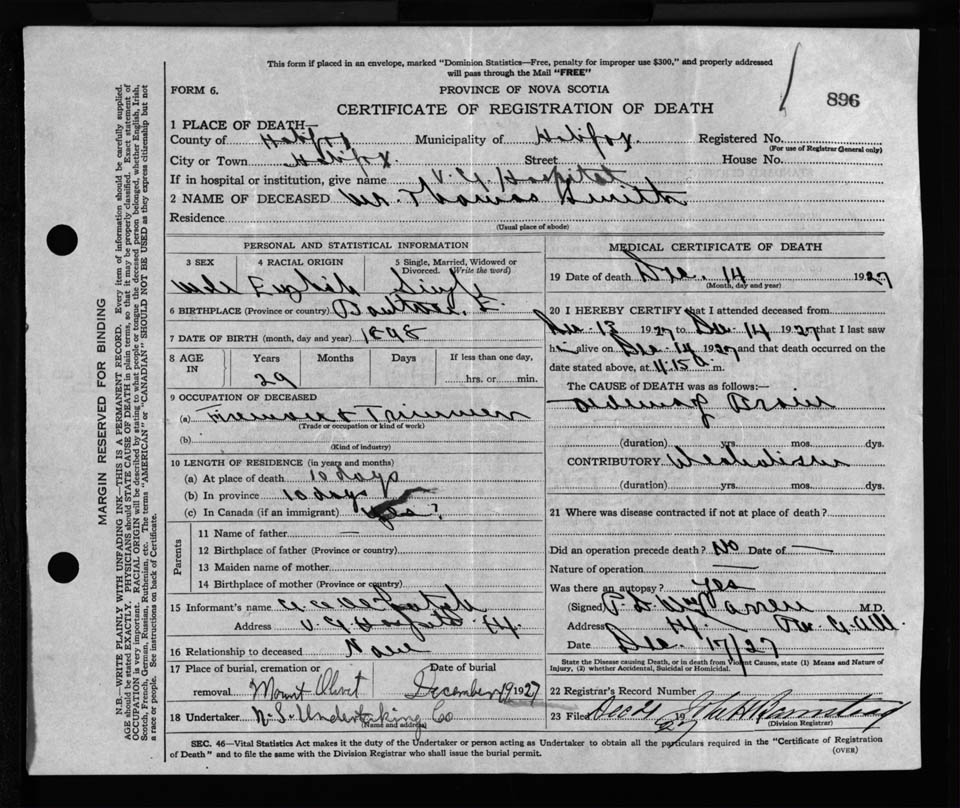 This form if placed in an envelope, marked "Dominion Statistics—Free, penalty for improper use $300," and properly addressed
will pass through the Mail "FREE"
FORM 6.
PROVINCE OF NOVA SCOTIA
896
CERTIFICATE OF REGISTRATION OF DEATH
1 PLACE OF DEATH—
County of Halifax Municipality of Halifax Registered No.
(For use of Registrar General only)
City or Town Halifax. Street House No.
If in hospital or institution, give name V. G. Hospital
2 NAME OF DECEASED Mr. Thomas Smith
Residence
(Usual place of abode)
PERSONAL AND STATISTICAL INFORMATION
3 SEX 4 RACIAL ORIGIN 5 Single, Married, Widowed or Divorced. (Write the word)
Male English Single
6 BIRTHPLACE (Province or country)
7 DATE OF BIRTH (month, day and year) 1898
8 AGE IN Years Months Days If less than one day,
29 hrs. or min.
9 OCCUPATION OF DECEASED
(a) Fireman & Trimmer
(Trade or occupation or kind of work)
(b)
(Kind of industry)
10 LENGTH OF RESIDENCE (in years and months)
(a) At place of death 10 days
(b) In province 10 days
(c) In Canada (if an immigrant) yes?
Parents
11 Name of father —
12 Birthplace of father (Province or country)
13 Maiden name of mother
14 Birthplace of mother (Province or country)
15 Informant's name
Address V. G. Hospital
16 Relationship to deceased None
17 Place of burial, cremation or removal Mount Olivet
Date of burial December 19 1927
18 Undertaker N. S. Undertaking Co
(Name and address)
MEDICAL CERTIFICATE OF DEATH
19 Date of death Dec. 14 1927
(Month, day and year)
20 I HEREBY CERTIFY that I attended deceased from
Dec. 13 1927 to Dec. 14 1927 that I last saw
him alive on Dec. 14 1927 and that death occurred on the
date stated above, at 11.15 a. m.
The CAUSE of DEATH was as follows:—
Oedema of Brain
(duration) yrs. mos. dys.
CONTRIBUTORY Alcoholism
(duration) yrs. mos. dys.
21 Where was disease contracted if not at place of death?
Did an operation precede death? No Date of —
Nature of operation —
Was there an autopsy? yes
(Signed) M.D.
Address
Date Dec. 17/27
State the Disease causing Death, or in death from Violent Causes, state (1) Means and Nature of
Injury, (2) whether Accidental, Suicidal or Homicidal.
22 Registrar's Record Number
23 Filed Dec 21 19
(Division Registrar)
SEC. 46—Vital Statistics Act makes it the duty of the Undertaker or person acting as Undertaker to obtain all the particulars required in the "Certificate of Registration
of Death" and to file the same with the Division Registrar who shall issue the burial permit.
(OVER)
MARGIN RESERVED FOR BINDING
N.B.—WRITE PLAINLY WITH UNFADING INK—THIS IS A PERMANENT RECORD. Every item of information should be carefully supplied.
AGE should be stated EXACTLY. PHYSICIANS should STATE CAUSE OF DEATH in plain terms, so that it may be properly classified. Exact statement of
OCCUPATION is very important. RACIAL ORIGIN will be described by stating to what people or tongue the deceased person belonged, whether English, Irish,
Scotch, French, German, Russian, Ruthenian, etc. The terms "AMERICAN" or "CANADIAN" SHOULD NOT BE USED as they express citizenship but not
a race or people. See instructions on back of Certificate.